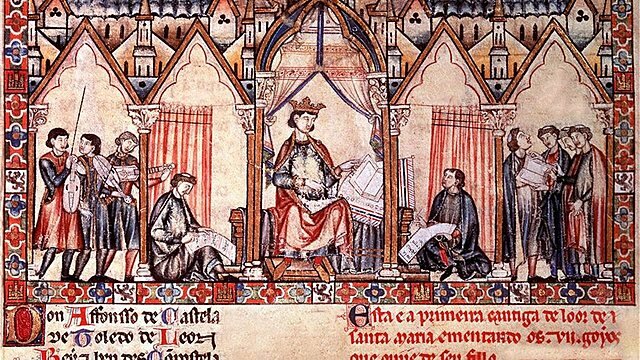 Don Affonsso de Castela
de Toledo de Leon
Rey e ben des Compostela
Esta e a primeira cantiga de loor de
santa maria ementando os .vij. goyos
que ouue de seu fillo